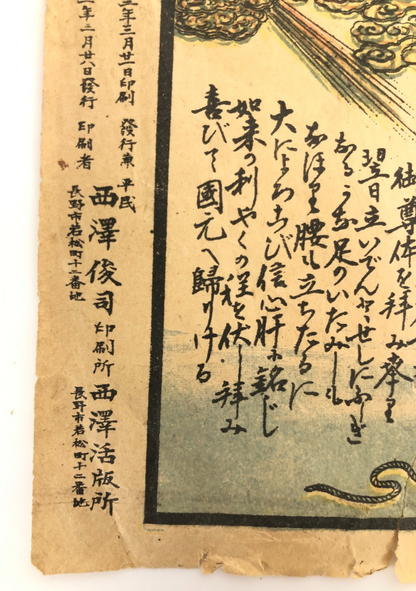 御尊体を拝み奉り
翌日立いでんとせしにふしぎ
なるかな足のいたみしも
なほり腰も立ちたるに
大によろこび信心肝に銘じ
如来の利やくの程を伏し拝み
喜びて國元へ歸りける
年三月廿一日印刷 發行兼 平民
年三月廿八日發行 印刷者
西澤俊司 印刷所 西澤活版所
長野市若松町十二番地 長野市若松町十二番地